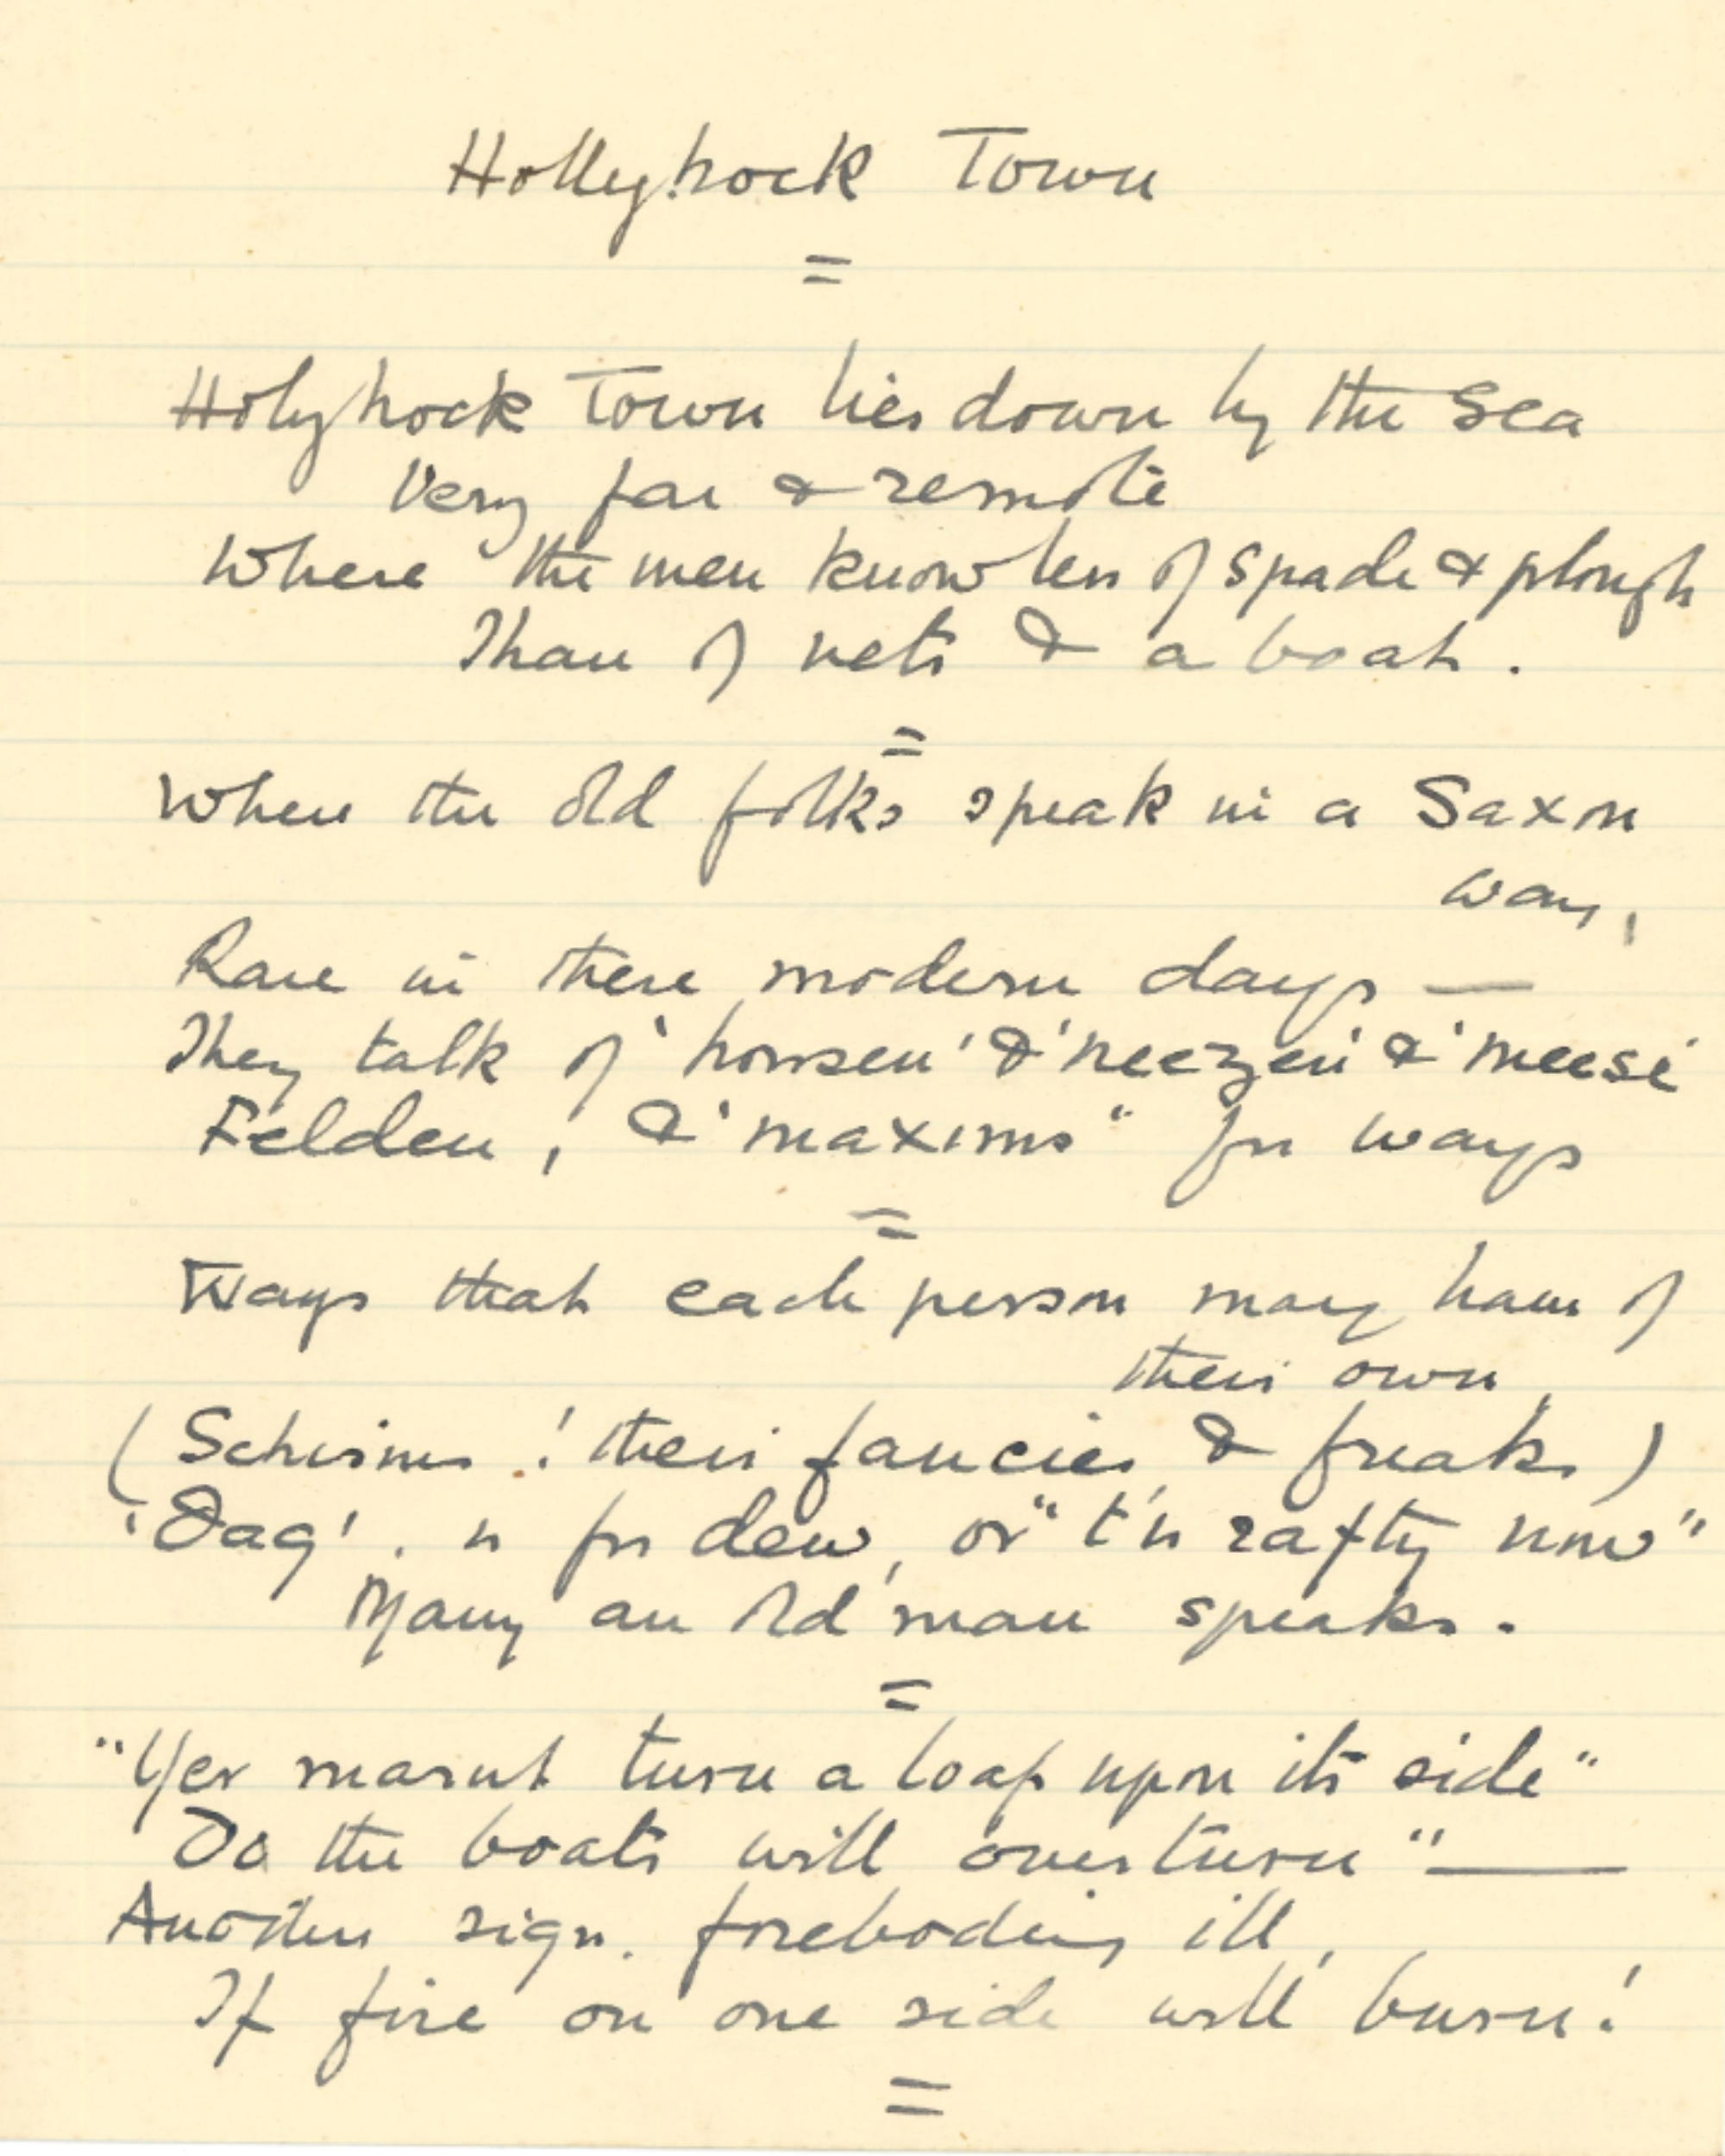 Hollyhock Town
=
Holyhock Town lies down by the Sea
Very far & remote
Where the men know less of spade & plough
Than of nets & a boat.
=
Where the old folks speak in a Saxon
way,
Rare in these modern days —
They talk of 'housen' & 'neezen' & 'meese'
Felden, & 'maxims" for ways
=
Ways that each person may have of
their own,
( ! their fancies & freaks)
'Dag'. is for dew, or "t'is rafty now"
Many an old man speaks.
=
"Yer marnt turn a loaf upon its side"
Do the boats will overturn" —
Another sign. foreboding ill,
If fire on one side will burn!
=